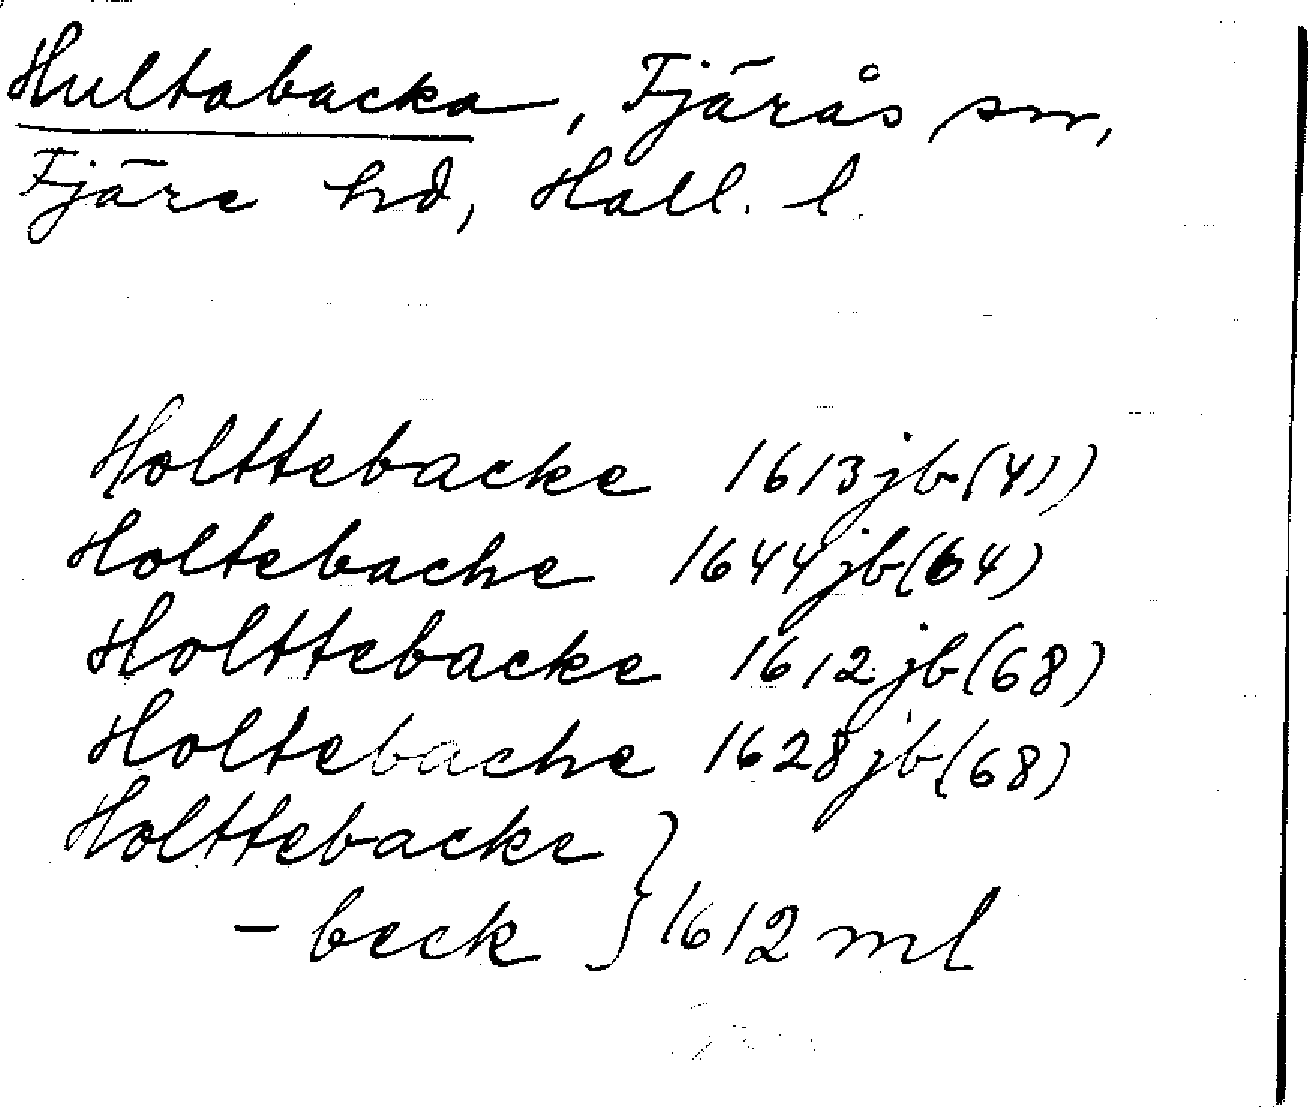 Hultabacka, Fjärås sn,
Fjäre hd, Hall. l.
Holttebacke 1613 jb (41)
Holtebache 1644 jb (64)
Holttebacke 1612 jb (68)
Holtebache 1628 jb (68)
Holttebacke
- beck } 1612 ml